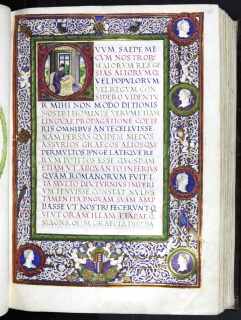 CVVM SAEPE ME
CVM NOSTROR
MAIORVM RES GE
STAS ALIORVMQ
VEL POPVLORVM
VEL REGVM CON
SIDERO VIDENTV
R MIHI NON MODO DITIONIS
NOSTRI HOMINES VERVM ETIAM
LINGVAE PROPAGATIONE COETE
RIS OMNIBVS ANTECELLVISSE
NAM PERSAS QVIDEM MEDOS
ASSYRIOS GRAECOS ALIOSQVE
PERMVLTOS LONGE LATEQVE RE
RVM POTITOS ESSE QVOSDAM
ETIAM VT ALIQVANTO INFERIVS
QVAM ROMANORVM FVIT I
TA MVLTO DIVTVRNIVS IMPERI
VM TENVISSE CONSTAT NVLLOS
TAMEN ITA LINGVAM SVAM AMP
LIASSE VT NOSTRI FECERVNT Q
VI VT ORAM ILLAM ITALIAE Q
MAGNA OLIM GRAECIA DICEBA